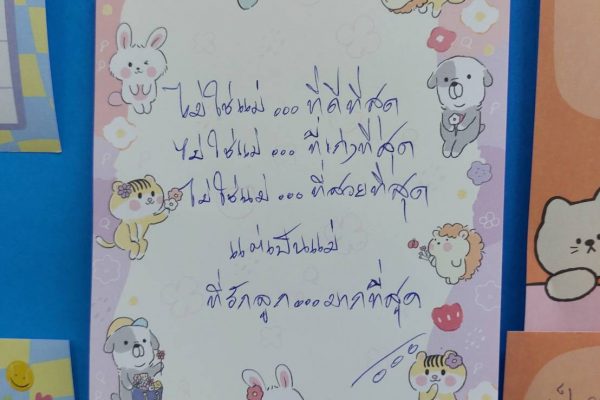 ไม่ใช่แม่ ... ที่ดีที่สุด
ไม่ใช่แม่ ... ที่เก่งที่สุด
ไม่ใช่แม่ ... ที่สวยที่สุด
แต่เป็นแม่
ที่รักลูก ... มากที่สุด